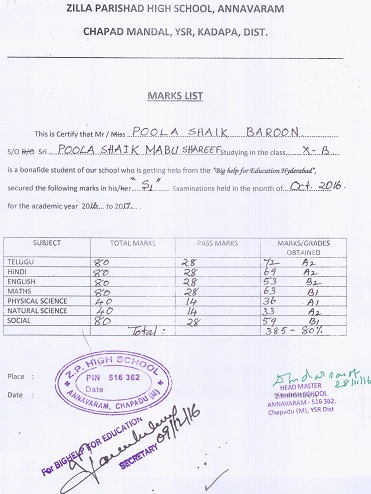 ZILLA PARISHAD HIGH SCHOOL, ANNAVARAM
CHAPAD MANDAL, YSR, KADAPA, DIST.
MARKS LIST
This is Certify that Mr / Miss POOLA SHAIK BAROON
S/O D/O Sri POOLA SHAIK MABU SHAREEF Studying in the class X-B
is a bonafide student of our school who is getting help from the "Big help for Education Hyderabad",
secured the following marks in his/her "S1" Examinations held in the month of Oct. 2016.
for the academic year 2016 to 2017
SUBJECT TOTAL MARKS PASS MARKS MARKS/GRADES OBTAINED
TELUGU 80 28 72 A2
HINDI 80 28 69 A2
ENGLISH 80 28 53 B2
MATHS 80 28 63 B1
PHYSICAL SCIENCE 40 14 36 A1
NATURAL SCIENCE 40 14 33 A2
SOCIAL 80 28 59 B1
Total: 385 - 80%
Place :
Date :
Z.P. HIGH SCHOOL
PIN 516 362
ANNAVARAM, CHAPADU (M)
28/11/16
HEAD MASTER
Z.P. HIGH SCHOOL
ANNAVARAM - 516 362.
Chapadu (M), YSR Dist
For BIGHELP FOR EDUCATION
SECRETARY 09/12/16